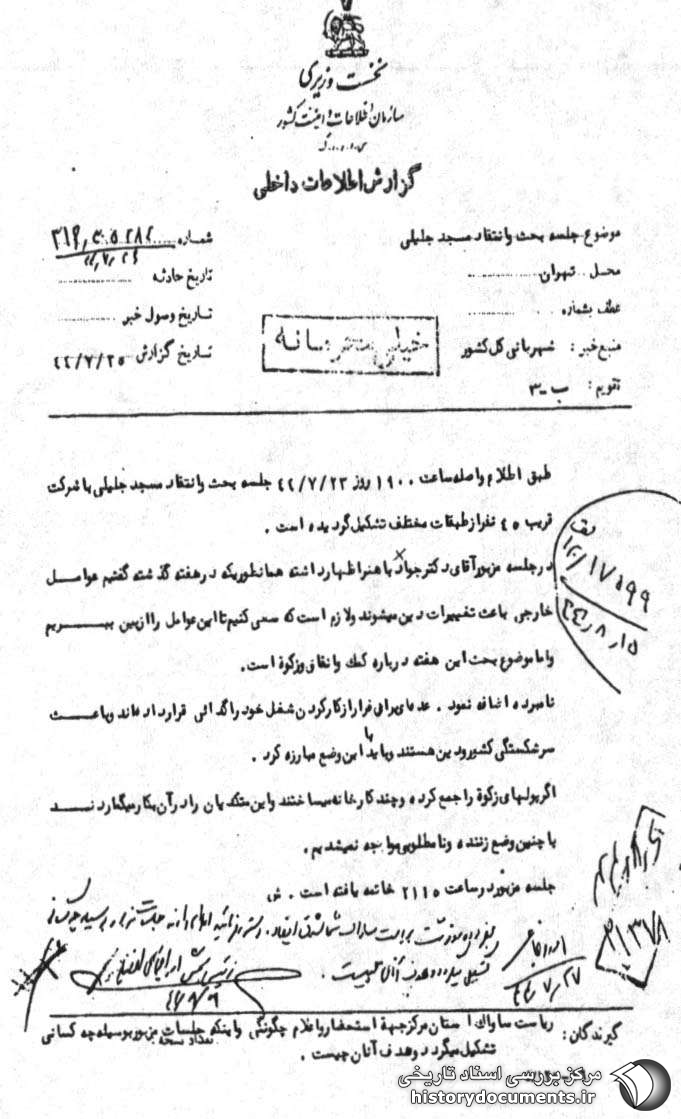 نخست وزیری
سازمان اطلاعات و امنیت کشور
س.ا.و.ا.ک
گزارش اطلاعات داخلی
موضوع جلسه بحث وانتقاد مسجد جلیلی
محل تهران
عطف بشماره
منبع خبر : شهربانی کل کشور
تقویم : ب-۳
شماره
تاریخ حادثه
تاریخ وصول خبر
تاریخ گزارش ۴۴/۷/۲۵
خیلی محرمانه
طبق اطلاع واصله ساعت ۱۹۰۰ روز ۴۴/۷/۲۳ جلسه بحث وانتقاد مسجد جلیلی با شرکت
قریب ۴۵ نفر از طبقات مختلف تشکیل گردیده است .
در جلسه مزبور آقای دکتر جواد باهنر اظهار داشته همانطوریکه در هفته گذشته گفتیم عوامل
خارجی باعث تغییرات دین میشوند ولازم است که سعی کنیم تا این عوامل را از بین ببریم
واما موضوع بحث این هفته درباره کمک وانفاق وزکوة است .
نامبرده اضافه نمود . عده‌ای برای فرار از کار کردن شغل خود را گدائی قرار داده‌اند وباعث
سرشکستگی کشور ودین هستند وباید با این وضع مبارزه کرد .
اگر پولهای زکوة را جمع کرده وچند کارخانه میساختند واین متکدیان را در آن بکار میگماردند
با چنین وضع زننده ونامطلوبی مواجه نمیشدیم .
جلسه مزبور در ساعت ۲۱۱۵ خاتمه یافته است . ش
۴۴/۷/۲۷
۱۷۵۹۹
۴۴/۸/۱۵
۳۱۳۷۸
گیرندگان : ریاست ساواک استان مرکز جهة استحضار واعلام چگونگی واینکه جلسات مزبور بوسیله چه کسانی
تشکیل میگردد وهدف آنان چیست .
تعداد نسخه
مرکز بررسی اسناد تاریخی
historydocuments.ir